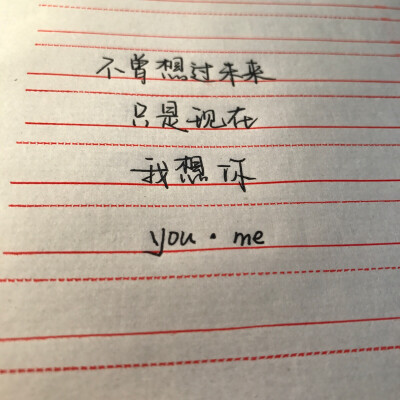 不曾想过未来
只是现在
我想你
you · me